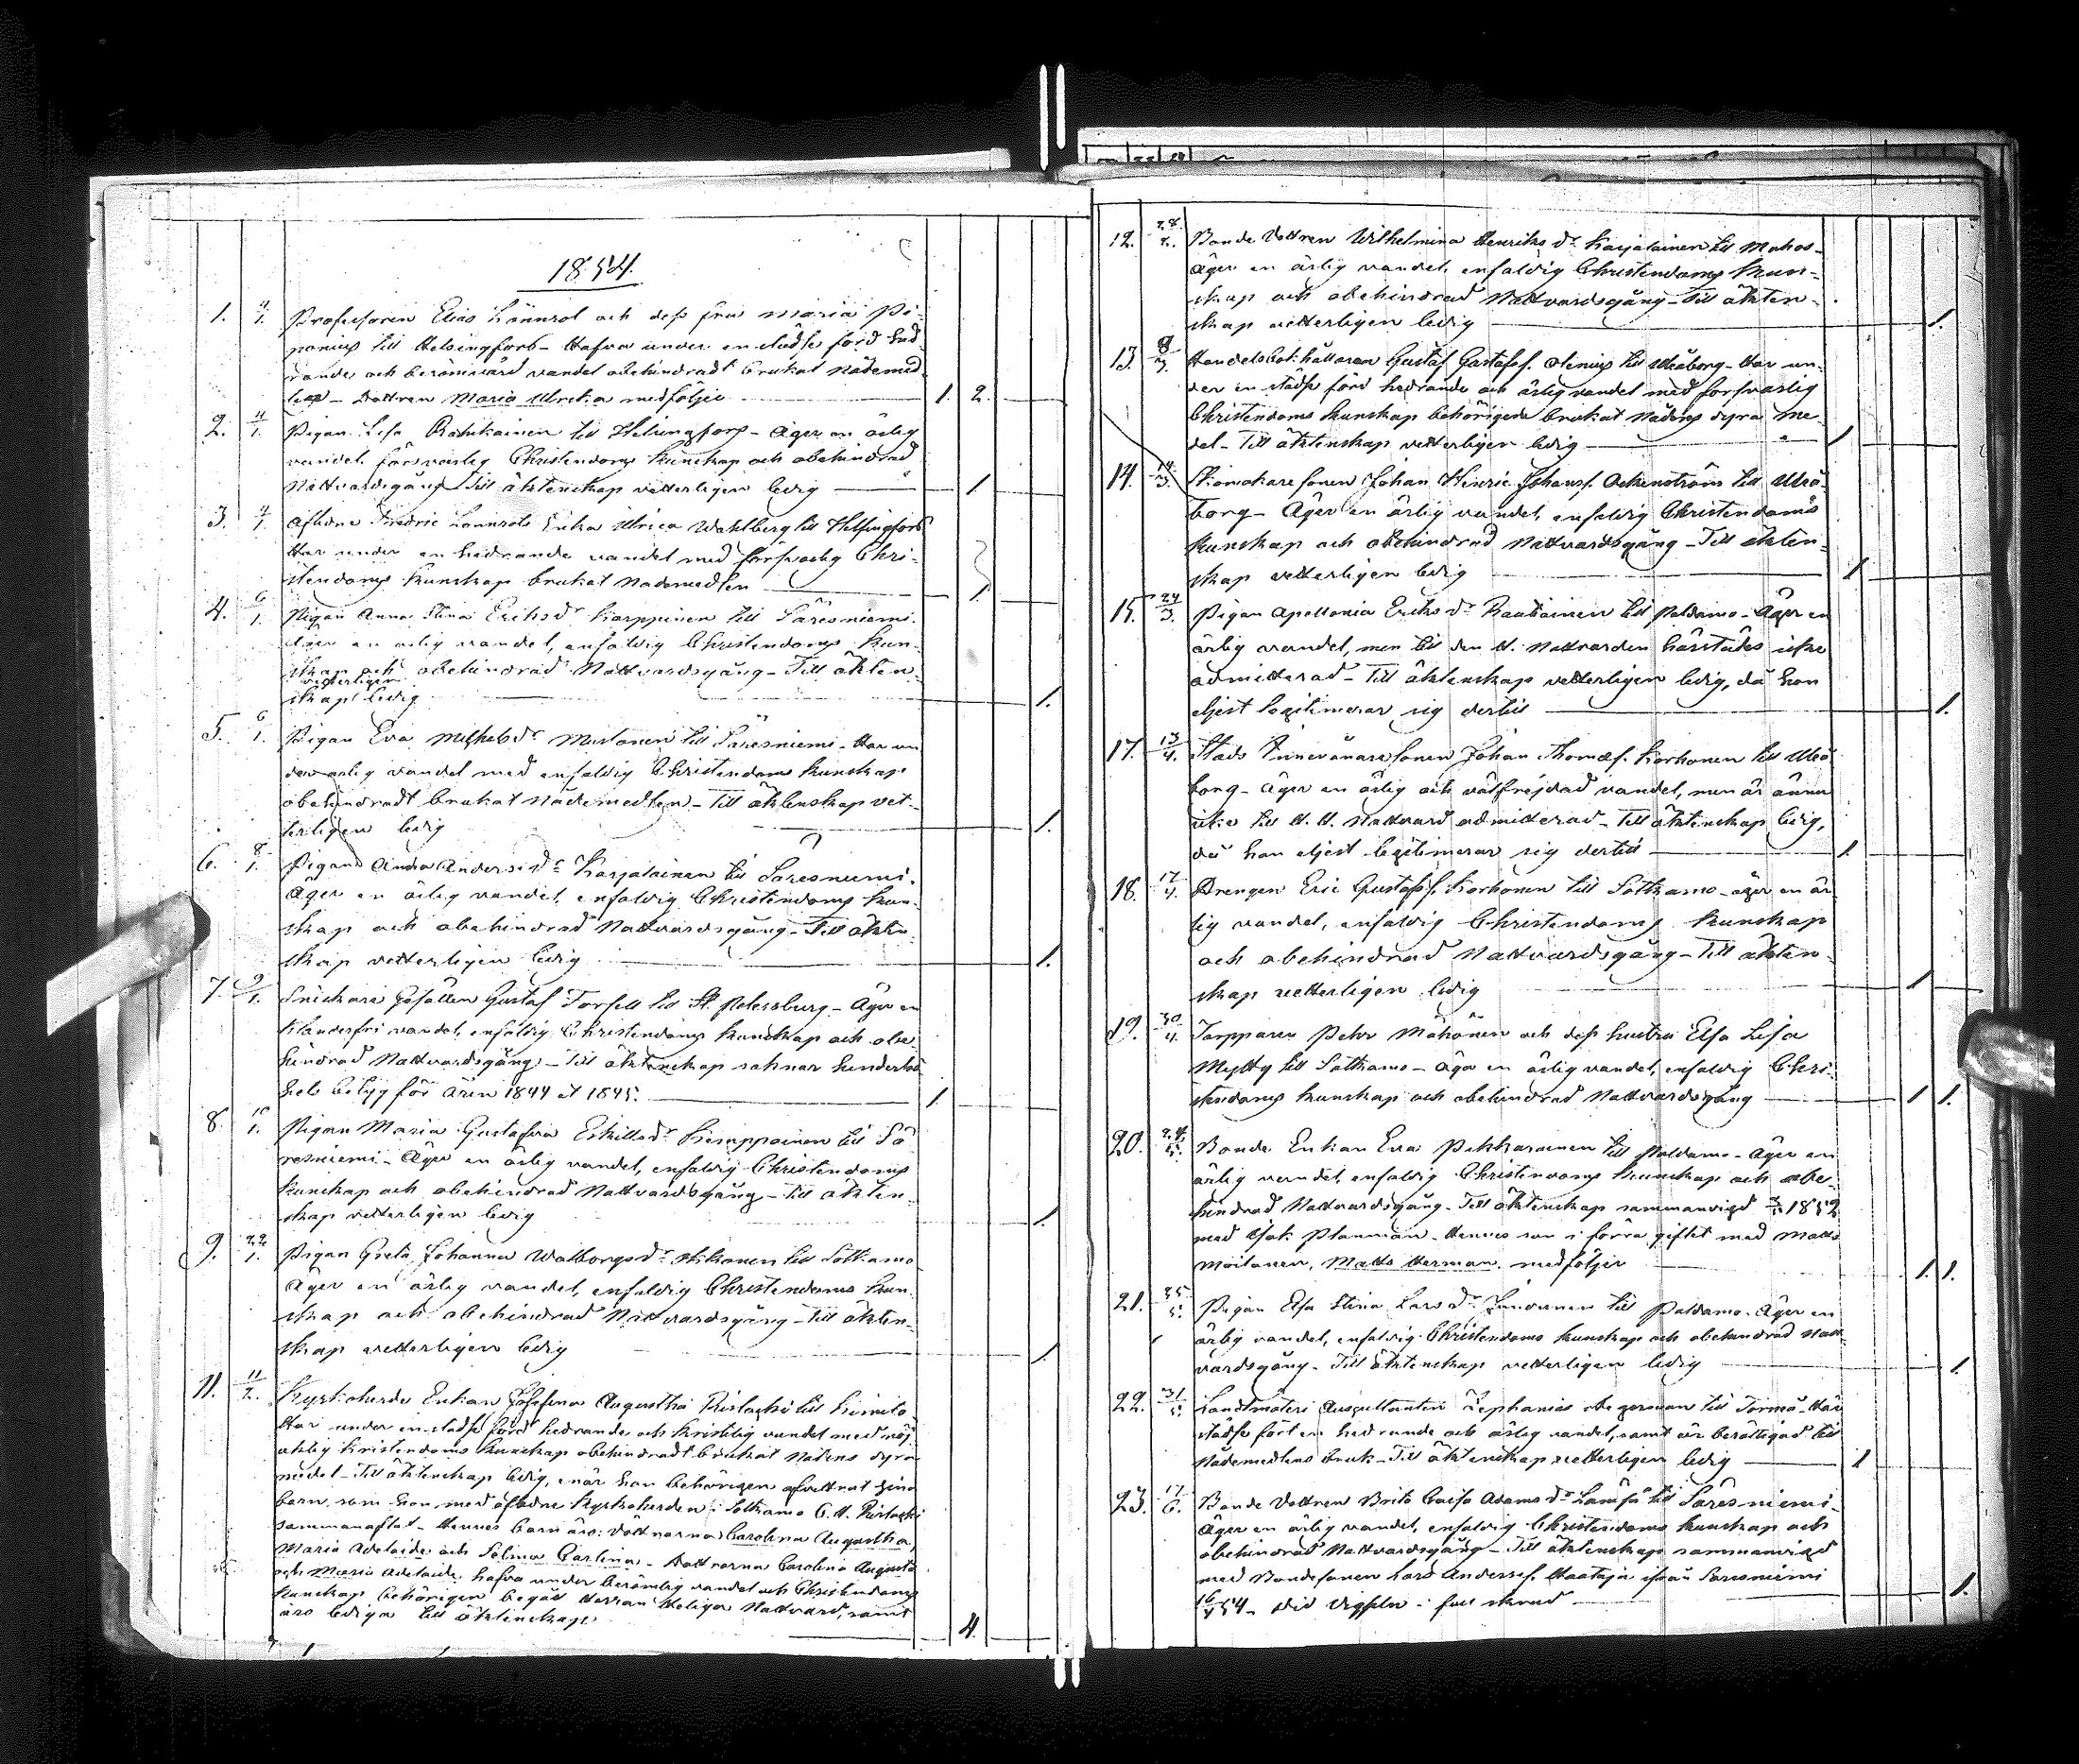 1854.
1. 4/1. Professoren Elias Lönnrot och dess fru Maria Pi-
ponius till Helsingfors – Hafva under en städse förd hed-
rande och berömvärd vandel obehindradt brukat Nådemed-
len – Dottren Maria Ulrika medföljer 1. 2.
2. 4/1. Pigan Lisa till Helsingfors – Äger en ärlig
vandel, försvarlig Christendoms kunskap och obehindrad
Nattvardsgång – Till äktenskap vetterligen ledig 1.
3. 4/1. Aflidne Fredric Lönnrots Enka Ulrica Wahlberg till Helsingfors
Har under en hedrande vandel med försvarlig Chri-
stendoms kunskap brukat Nådemedlen 1.
4. 6/1. Pigan Anna Stina Ericsdr Karppinen till Säresniemi.
Äger en ärlig vandel, enfaldig Christendoms kun-
skap och obehindrad Nattvardsgång – Till äkten-
vetterligen
skap ledig 1.
5. 6/1. Pigan Eva Michelsdr Mustonen till Säresniemi – Har un
der ärlig vandel med enfaldig Christendoms kunskap
obehindradt brukat Nådemedlen – Till äktenskap vet-
terligen ledig 1.
6. 8/1. Pigan Anna Andersdr Karjalainen till Säresniemi.
Äger en ärlig vandel, enfaldig Christendoms kun-
skap och obehindrad Nattvardsgång – Till äkten-
skap vetterligen ledig 1.
7. 9/1. Snickare Gesällen Gustaf Torsell till St. Petersburg – Äger en
klanderfri vandel, enfaldig Christendoms kunskap och obe-
hindrad Nattvardsgång – Till äktenskap saknar hinderlös-
hets betyg för åren 1844 et 1845. 1
8. 10/1. Pigan Maria Gustafva Eskilsdr Kemppainen till Sä
resniemi – Äger en ärlig vandel, enfaldig Christendoms
kunskap och obehindrad Nattvardsgång – Till äkten-
skap vetterligen ledig 1.
9. 22/1. Pigan Greta Johanna Walborgsdr till Sotkamo
Äger en ärlig vandel, enfaldig Christendoms kun-
skap och obehindrad Nattvardsgång – Till äkten-
skap vetterligen ledig 1.
11. 11/2. Kyrkoherde Enkan Josefina Augustha Rislachi till Kimito
Har under en städse förd hedrande och kristelig vandel med nöj-
aktig Kristendoms kunskap obehindradt brukat Nådens dyra
medel – Till äktenskap ledig, enär hon behörigen afvittrat sina
barn, som hon med aflidne Kyrkoherden i Sotkamo C. H. Rislachi
sammanaflat – Hennes barn äro: döttrarna Carolina Augustha,
Maria Adelaide och Selma Carlina – Döttrarna Carolina Augusta
och Maria Adelaide hafva under berömlig vandel och Christendoms
kunskap behörigen begått Herrans Heliga Nattvard, samt
äro lediga till äktenskap. 4.
12. 28/2. Bonde Dottren Wilhelmina Henriksdr Karjalainen till Muhos –
Äger en ärlig vandel, enfaldig Christendoms kun-
skap och obehindrad Nattvardsgång – Till äkten-
skap vetterligen ledig 1.
13. 8/3. Handelsbokhållaren Gustaf Gustafsf. till Uleåborg – Har un-
der en städse förd hedrande och ärlig vandel med försvarlig
Christendoms kunskap behörigen brukat Nådens dyra me-
del – Till äktenskap vetterligen ledig 1
14. 14/3. Skomakare sonen Johan Henric Johansf. till Uleå
borg – Äger en ärlig vandel, enfaldig Christendoms
kunskap och obehindrad Nattvardsgång – Till äkten-
skap vetterligen ledig 1.
15. 24/3. Pigan Apollonia Ericsdr Rautiainen till Paldamo – Äger en
ärlig vandel, men till den H. Nattvarden härstädes icke
admitterad – Till äktenskap vetterligen ledig, då hon
eljest legitimerar sig dertill 1.
17. 13/4. Stads Innevånare sonen Johan Thomasf. Korhonen till Uleå
borg – Äger en ärlig och välfrejdad vandel, men är ännu
icke till H. H. Nattvard admitterad – Till äktenskap ledig,
då han eljest legitimerar sig dertill 1.
18. 17/4. Drengen Eric Gustafsf. Korhonen till Sotkamo – äger en är
lig vandel, enfaldig Christendoms kunskap
och obehindrad Nattvardsgång – Till äkten
skap vetterligen ledig 1.
19. 30/4. Torpparen Pehr Mähönen och dess hustru Elsa Lisa
Mytty till Sotkamo – Äga en ärlig vandel, enfaldig Chri-
stendoms kunskap och obehindrad Nattvardsgång 1. 1.
20. 24/5. Bonde Enkan Eva Pikkarainen till Paldamo – Äger en
ärlig vandel, enfaldig Christendoms kunskap och obe-
hindrad Nattvardsgång – Till äktenskap sammanvigd 1852
med Isak Planman – Hennes son i förra giftet med Matts
Moilanen, Matts Herman, medföljer 1. 1.
21. 25/5. Pigan Elsa Stina Larsdr till Paldamo – Äger en
ärlig vandel, enfaldig Christendoms kunskap och obehindrad Natt-
vardsgång – Till äktenskap vetterligen ledig 1.
22. 31/5. Landtmäteri Auscultanten Zephanias till – Har
städse fört en hedrande och ärlig vandel, samt är berättigad till
Nådemedlens bruk – Till äktenskap vetterligen ledig 1
23. 17/6. Bonde Dottren Brita Caisa Adamsdr till Säresniemi –
Äger en ärlig vandel, enfaldig Christendoms kunskap och
obehindrad Nattvardsgång – Till äktenskap sammanvigd
med Bondesonen Lars Andersf. Haataja ifrån Säresniemi
54 – Vid Vigseln full skrud 1.